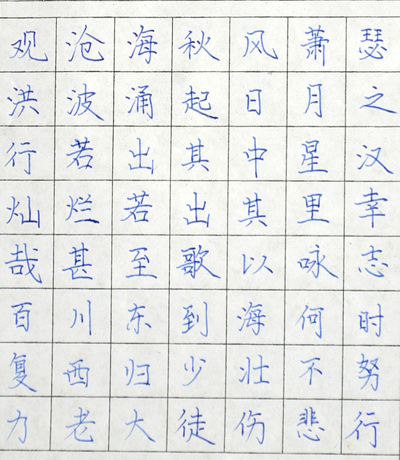 观沧海秋风萧瑟
洪波涌起日月之
行若出其中星汉
灿烂若出其里幸
哉甚至歌以咏志
百川东到海何时
复西归少壮不努
力老大徒伤悲行